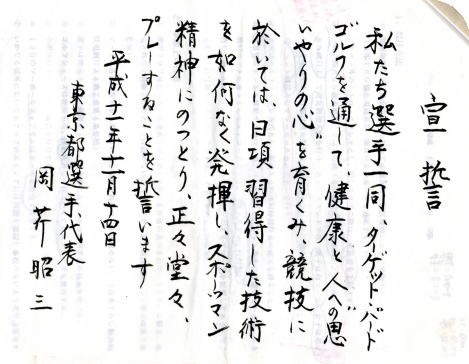 宣誓
私たち選手一同、ターゲット・バード
ゴルフを通して、健康と人への"思
いやりの心"を育くみ、競技に
於いては、日項習得した技術
を如何なく発揮し、スポーツマン
精神にのっとり、正々堂々、
プレーすることを誓います
平成十一年十一月十四日
東京都選手代表
岡芹昭三